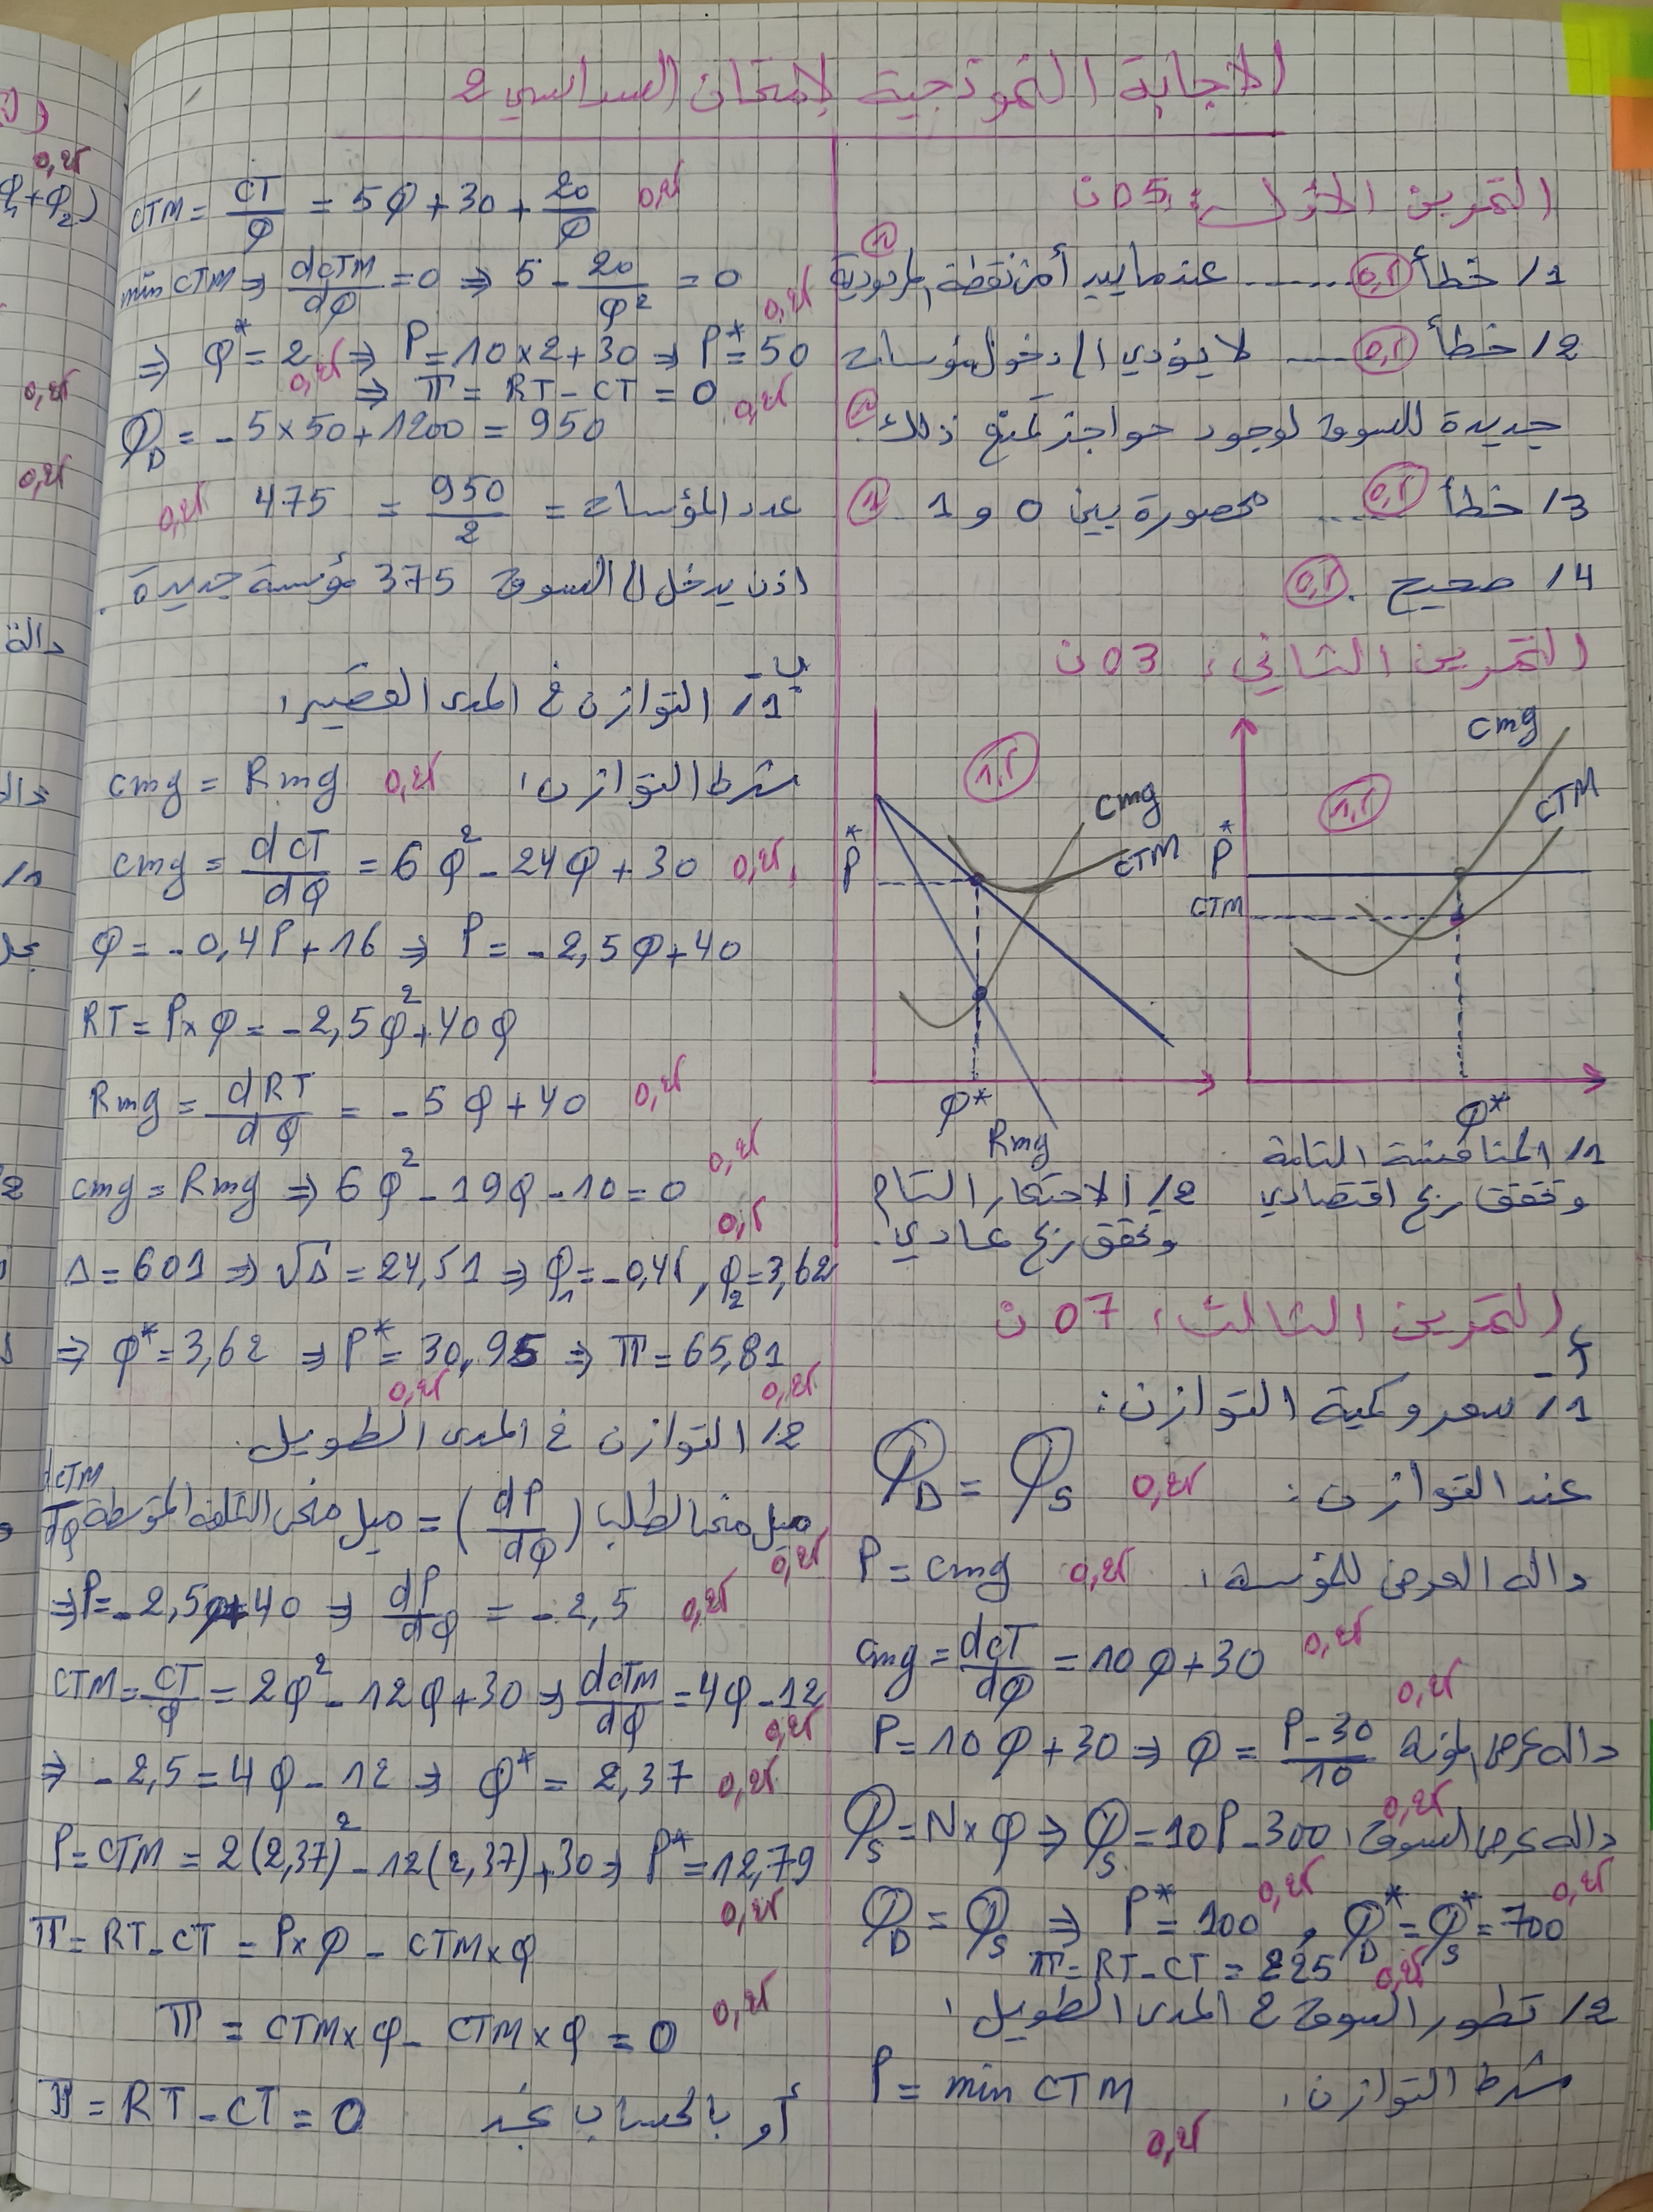 الإجابة النموذجية لامتحان السداسي 2
التمرين الأول: 05 ن
1/ خطأ 0,5 ...... عندما يبيد أمن نقطة المردودية 1
2/ خطأ 0,5 .... لا يؤدي إلى دخول مؤسسات
جديدة للسوق لوجود حواجز تمنع ذلك. 1
3/ خطأ 0,5 .... محصورة بين 0 و 1. 1
4/ صحيح. 0,5
التمرين الثاني: 03 ن
Cmg
CTM
1,5
P*
CTM
Q*
1/ المنافسة التامة
وتحقق ربح اقتصادي
1,5
Cmg
CTM
P*
Q*
Rmg
2/ الاحتكار التام
وتحقق ربح عادي.
التمرين الثالث: 07 ن
أ-
1/ سعر وكمية التوازن:
عند التوازن: Q_D = Q_S 0,25
دالة العرض للمؤسسة: P = cmg 0,25
Cmg = dCT/dQ = 10Q + 30 0,25
P = 10Q + 30 ⇒ Q = (P - 30)/10 دالة عرض 0,25
Q_S = N × Q ⇒ Q_S = 10P - 300 دالة عرض السوق: 0,25
Q_D = Q_S ⇒ P* = 100 0,25 , Q_D* = Q_S* = 700 0,25
π = RT - CT = 225 0,25
2/ تطور السوق في المدى الطويل:
شرط التوازن: P = min CTM
0,25
CTM = CT/Q = 5Q + 30 + 20/Q 0,25
min CTM ⇒ dCTM/dQ = 0 ⇒ 5 - 20/Q² = 0 0,25
⇒ Q* = 2 ⇒ P = 10×2+30 ⇒ P* = 50
0,25 ⇒ π = RT - CT = 0 0,25
Q_D = -5×50+1200 = 950
عدد المؤسسات = 950/2 = 475 0,25
اذن يدخل إلى السوق 375 مؤسسة جديدة.
ب-
1/ التوازن في المدى القصير:
شرط التوازن: cmg = Rmg 0,25
cmg = dCT/dQ = 6Q² - 24Q + 30 0,25
Q = -0,4P + 16 ⇒ P = -2,5Q + 40
RT = P×Q = -2,5Q² + 40Q
Rmg = dRT/dQ = -5Q + 40 0,25
cmg = Rmg ⇒ 6Q² - 19Q - 10 = 0 0,25
0,5
Δ = 601 ⇒ √Δ = 24,51 ⇒ Q₁ = -0,45 , Q₂ = 3,62
⇒ Q* = 3,62 ⇒ P* = 30,95 ⇒ π = 65,81
0,25 0,25
2/ التوازن في المدى الطويل.
ميل منحنى الطلب (dP/dQ) = ميل منحنى التكلفة المتوسطة dCTM/dQ
0,25
⇒ P = -2,5Q + 40 ⇒ dP/dQ = -2,5 0,25
CTM = CT/Q = 2Q² - 12Q + 30 ⇒ dCTM/dQ = 4Q - 12
0,25
⇒ -2,5 = 4Q - 12 ⇒ Q* = 2,37 0,25
P = CTM = 2(2,37)² - 12(2,37) + 30 ⇒ P* = 12,79
0,25
π = RT - CT = P×Q - CTM×Q
π = CTM×Q - CTM×Q = 0 0,25
أو بالحساب نجد π = RT - CT = 0